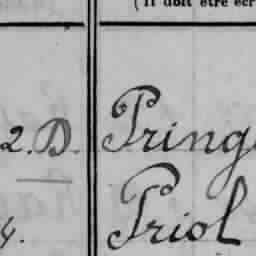 (Il doit être écr
2. D. Pring
4. Priol